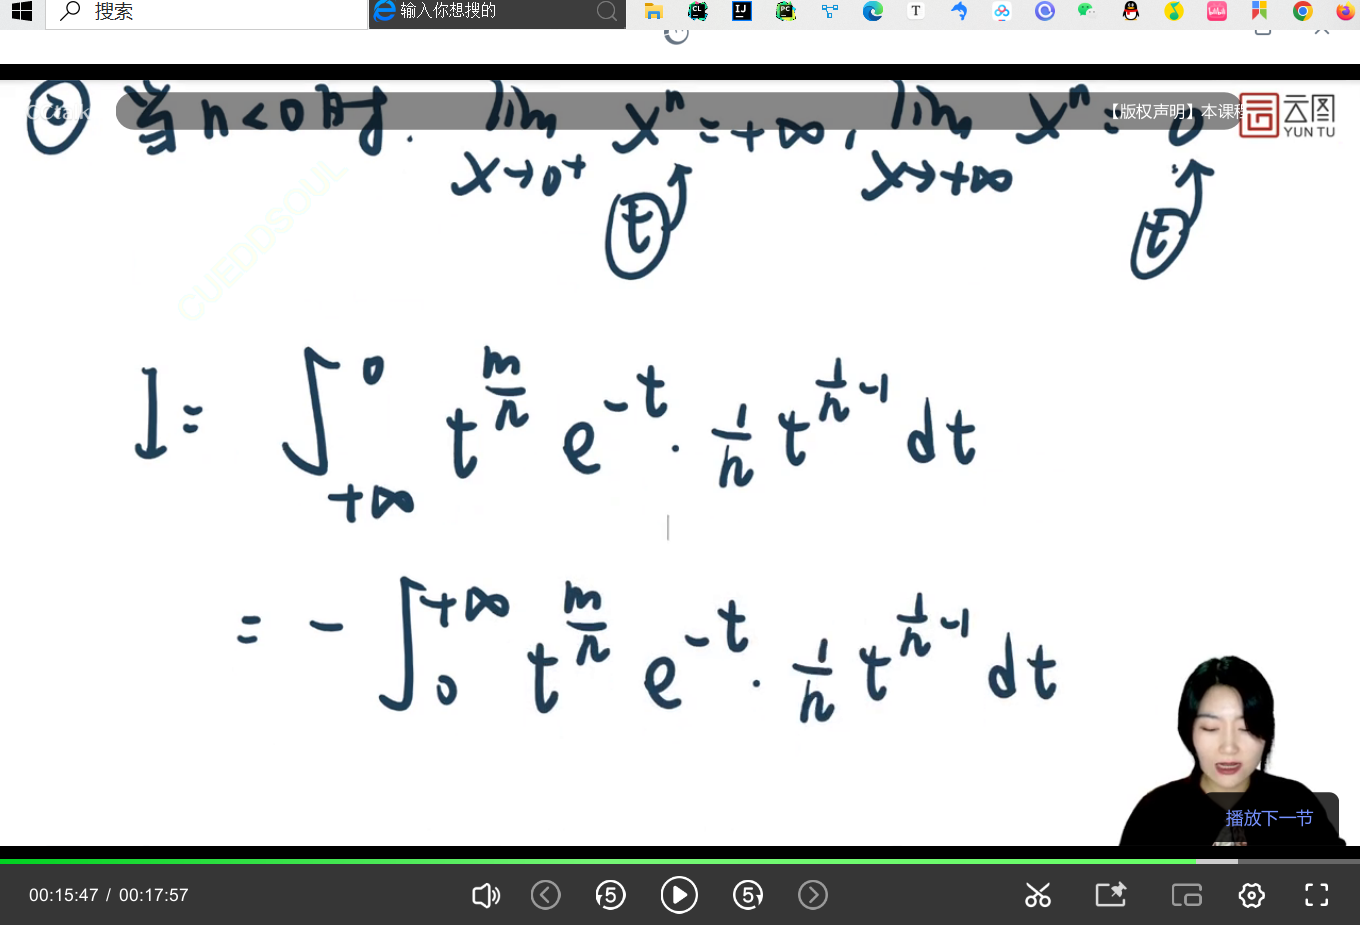 搜索 输入你想搜的
【版权声明】本课程 云图
YUN TU
② 当 n<0 时. lim x→0⁺ xⁿ = +∞, lim x→+∞ xⁿ = 0
t t
OUEDDSOUL
I = ∫_{+∞}^{0} t^{m/n} e^{-t} · 1/n t^{1/n -1} dt
= - ∫_{0}^{+∞} t^{m/n} e^{-t} · 1/n t^{1/n -1} dt
播放下一节
00:15:47 / 00:17:57 5 5